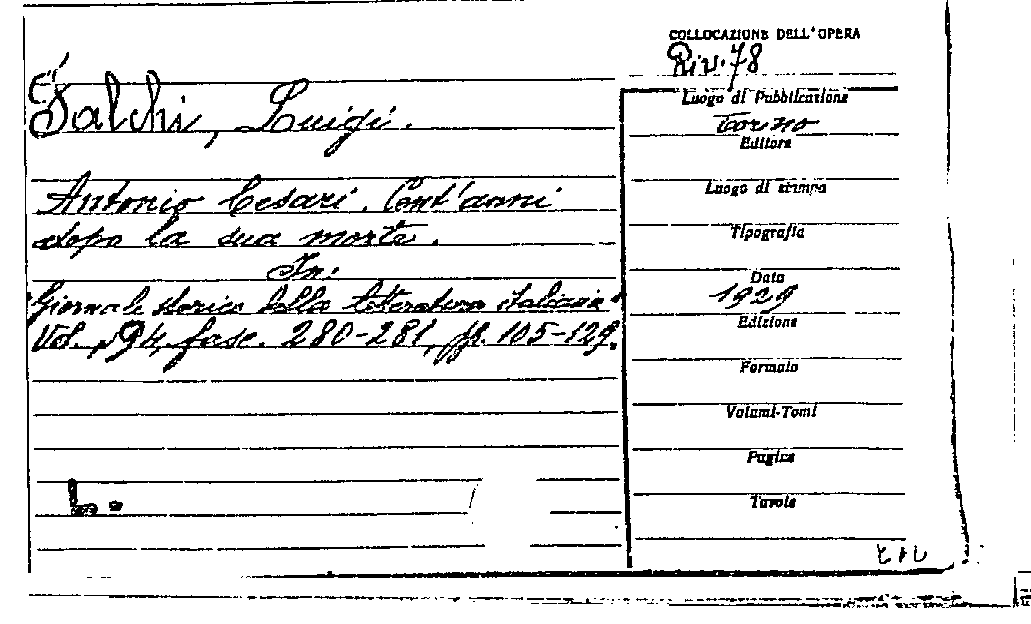 COLLOCAZIONE DELL'OPERA
Riv. 78
Falchi, Luigi.
Antonio Cesari. Cent'anni
dopo la sua morte.
In:
"Giornale storico della letteratura italiana"
Vol. 94, fasc. 280-281, pp. 105-129.
L.
Luogo di Pubblicazione
Torino
Editore
Luogo di stampa
Tipografia
Data
1929
Edizione
Formato
Volumi-Tomi
Pagine
Tavole